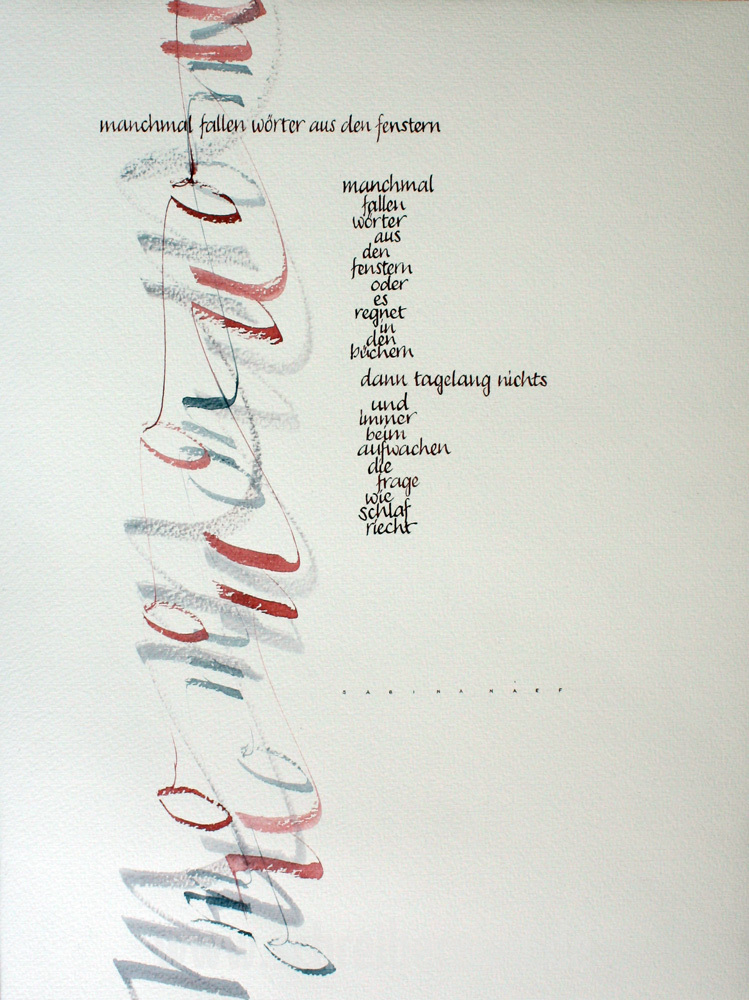 manchmal fallen wörter aus den fenstern
manchmal
fallen
wörter
aus
den
fenstern
oder
es
regnet
in
den
büchern
dann tagelang nichts
und
immer
beim
aufwachen
die
frage
wie
schlaf
riecht
SABINA NAEF